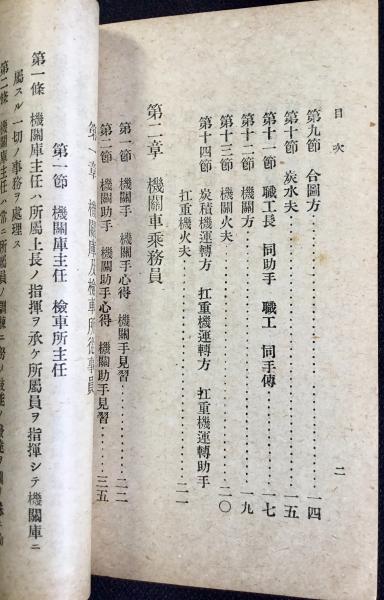 目次
二
第九節 合圖方……一四
第十節 炭水夫……一五
第十一節 職工長 同助手 職工 同手傳……一七
第十二節 機關方……一九
第十三節 機關火夫……二〇
第十四節 炭積機運轉方 扛重機運轉方 扛重機運轉助手
扛重機火夫……二一
第二章 機關車乘務員
第一節 機關手 機關手心得 機關手見習……二二
第二節 機關助手 機關助手心得 機關助手見習……三五
第一章 機關庫及檢車所從事員
第一節 機關庫主任 檢車所主任
第一條 機關庫主任ハ所屬上長ノ指揮ヲ承ケ所屬員ヲ指揮シテ機關庫ニ
屬スル一切ノ事務ヲ處理ス
第二條 機關庫主任ハ常ニ所屬員ノ訓練ニ努メ